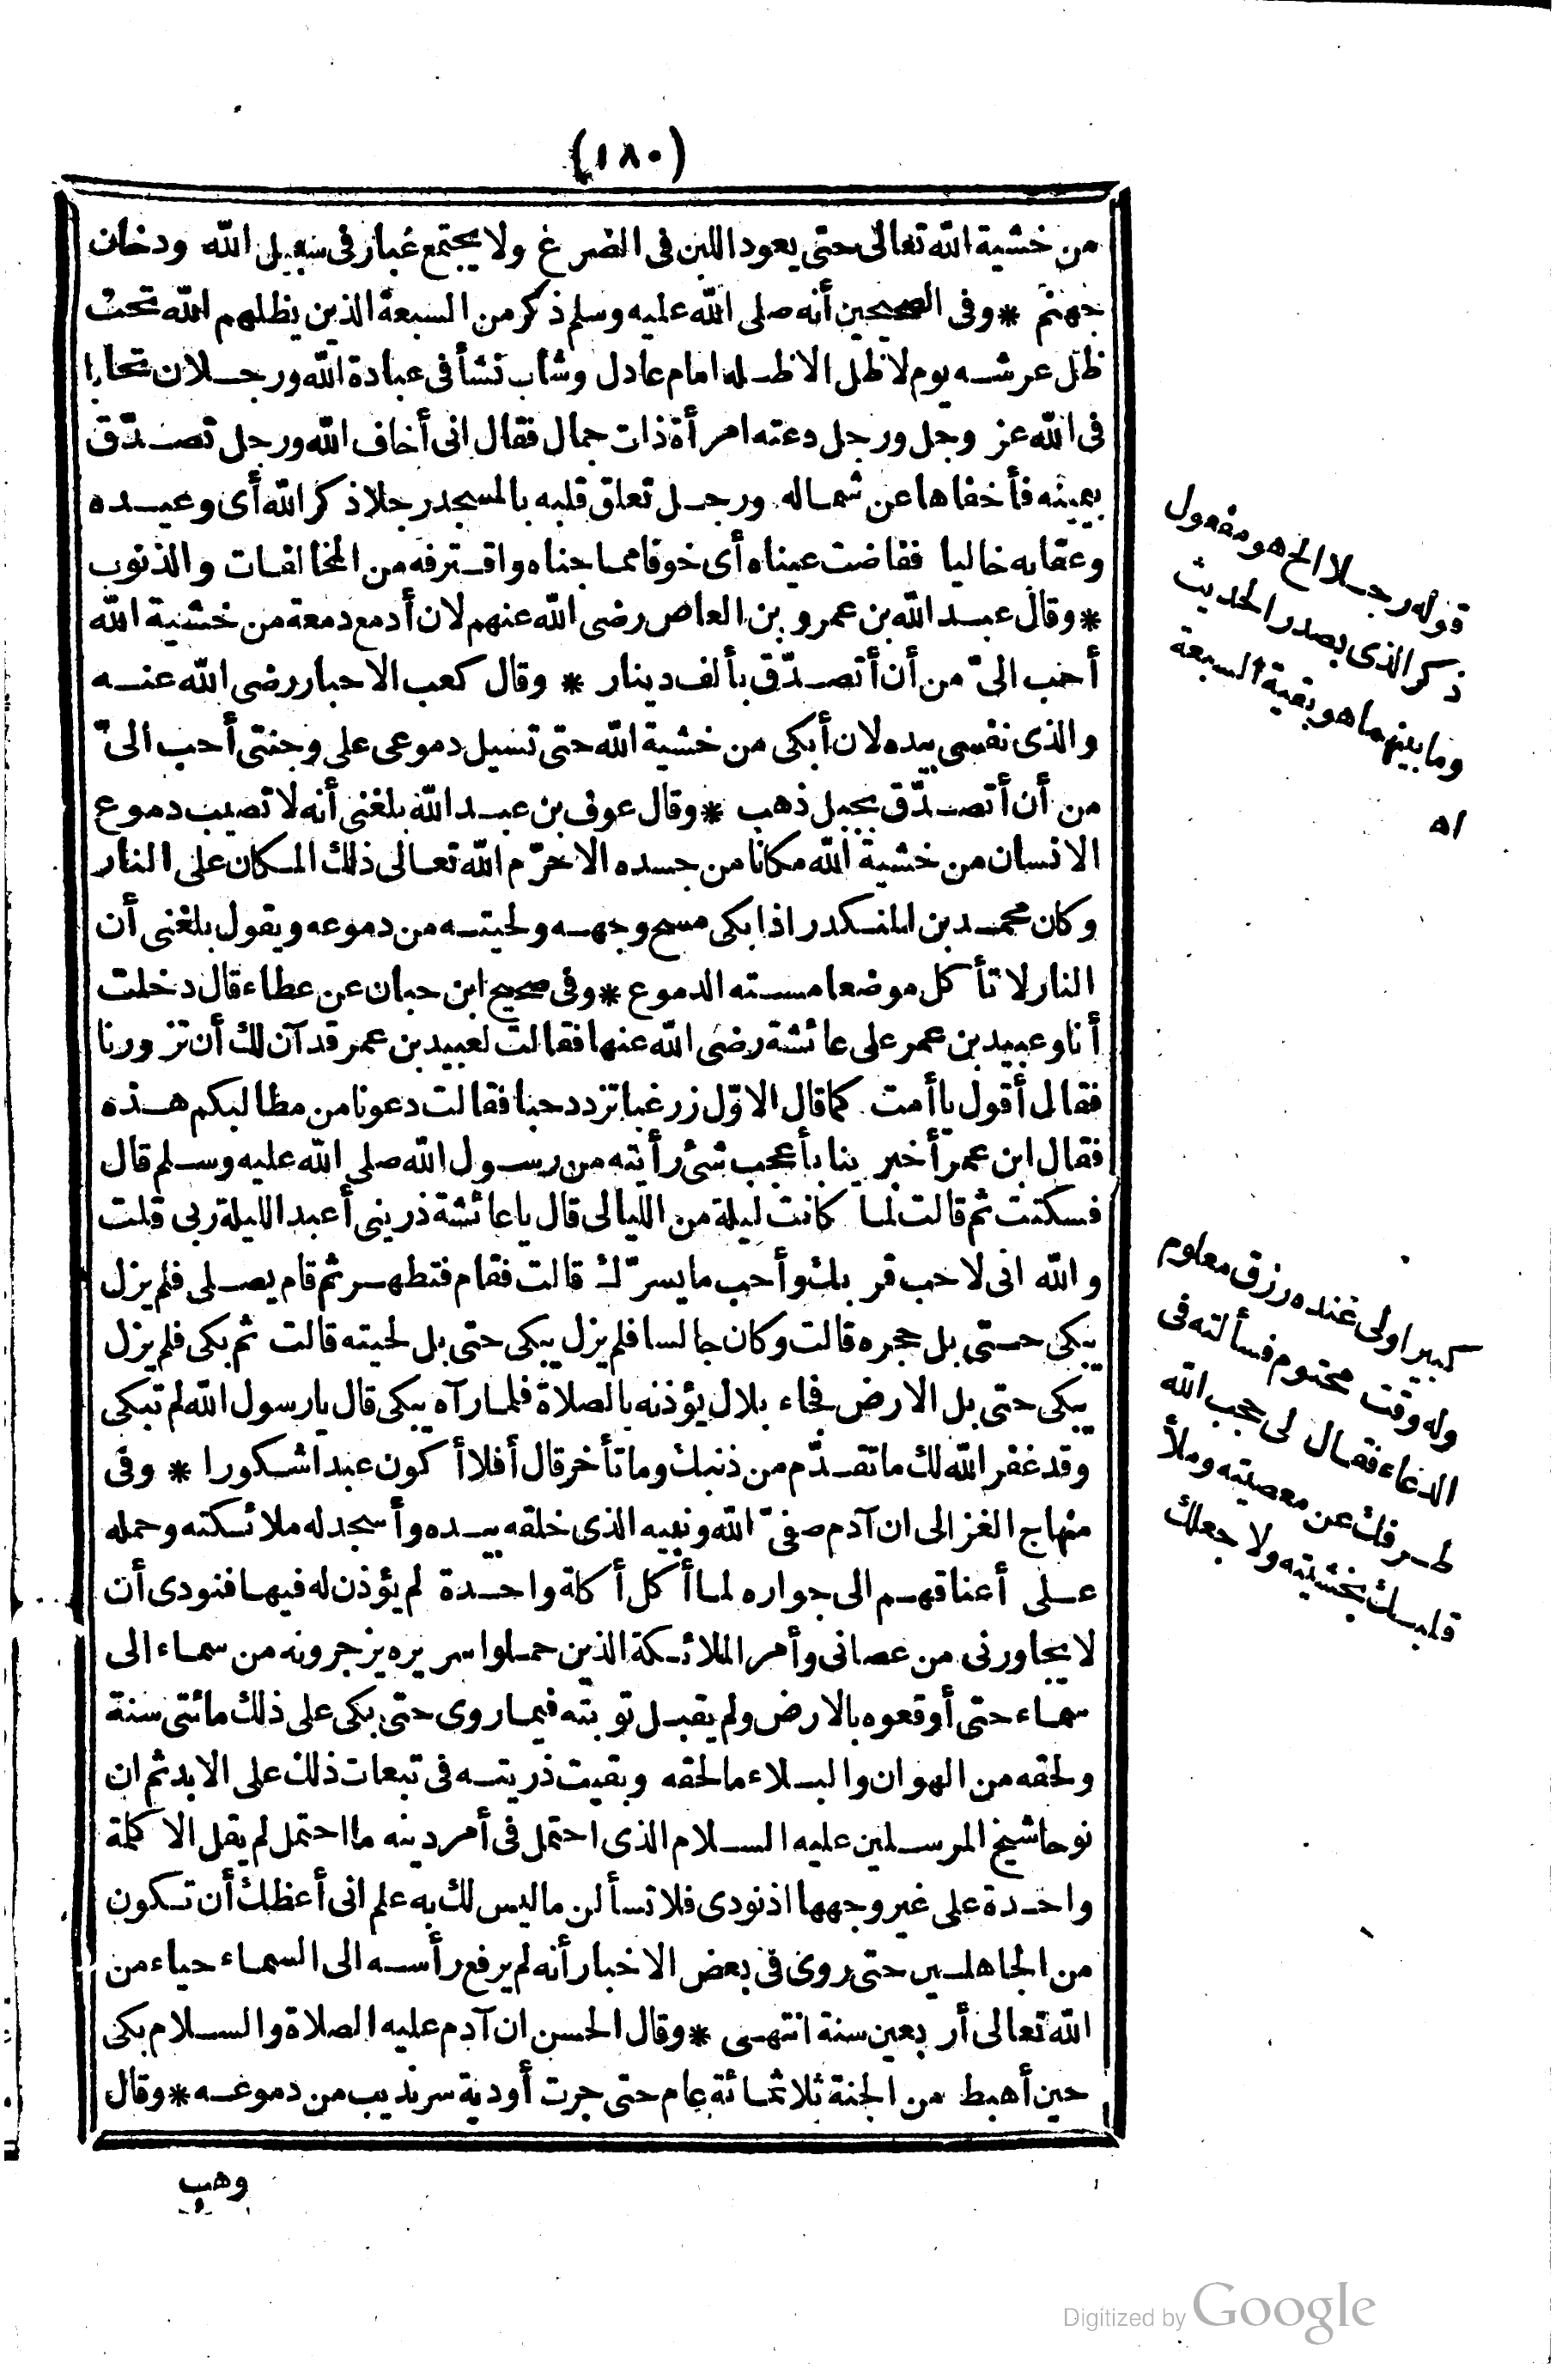 (١٨٠)
من خشية الله تعالى حتى يعود اللبن فى الضرع ولا يجتمع غبار فى سبيل الله ودخان
جهنم * وفى الصحيحين أنه صلى الله عليه وسلم ذكر من السبعة الذين يظلهم الله تحت
ظل عرشه يوم لا ظل الا ظله امام عادل وشاب نشأ فى عبادة الله ورجلان تحابا
فى الله عز وجل ورجل دعته امرأة ذات جمال فقال انى أخاف الله ورجل تصدّق
بيمينه فأخفاها عن شماله ورجل تعلق قلبه بالمسجد رجلا ذكر الله أى وعيده
وعقابه خاليا ففاضت عيناه أى خوفا مما جناه واقترفه من المخالفات والذنوب
* وقال عبد الله بن عمرو بن العاص رضى الله عنهم لان أدمع دمعة من خشية الله
أحب الىّ من أن أتصدّق بألف دينار * وقال كعب الاحبار رضى الله عنه
والذى نفسى بيده لان أبكى من خشية الله حتى تسيل دموعى على وجنتى أحب الىّ
من أن أتصدّق بجبل ذهب * وقال عوف بن عبد الله بلغنى أنه لا تصيب دموع
الانسان من خشية الله مكانا من جسده الا حرّم الله تعالى ذلك المكان على النار
وكان محمد بن المنكدر اذا بكى مسح وجهه ولحيته من دموعه ويقول بلغنى أن
النار لا تأكل موضعا مسته الدموع * وفى صحيح ابن حبان عن عطاء قال دخلت
أنا وعبيد بن عمر على عائشة رضى الله عنها فقالت لعبيد بن عمر قد آن لك أن تزورنا
فقال أقول يا أمت كما قال الاوّل زر غبا تزدد حبا فقالت دعونا من مطالبكم هذه
فقال ابن عمر أخبرينا بأعجب شئ رأيته من رسول الله صلى الله عليه وسلم قال
فسكتت ثم قالت لما كانت ليلة من الليالى قال يا عائشة ذرينى أعبد الليلة ربى قلت
والله انى لاحب قربك وأحب ما يسرّك قالت فقام فتطهر ثم قام يصلى فلم يزل
يبكى حتى بل حجره قالت وكان جالسا فلم يزل يبكى حتى بل لحيته قالت ثم بكى فلم يزل
يبكى حتى بل الارض فجاء بلال يؤذنه بالصلاة فلما رآه يبكى قال يا رسول الله لم تبكى
وقد غفر الله لك ما تقدّم من ذنبك وما تأخر قال أفلا أكون عبدا شكورا * وفى
منهاج الغزالى ان آدم صفىّ الله ونبيه الذى خلقه بيده وأسجد له ملائكته وحمله
على أعناقهم الى جواره لما أكل أكلة واحدة لم يؤذن له فيها فنودى أن
لا يجاورنى من عصانى وأمر الملائكة الذين حملوا سريره يزجرونه من سماء الى
سماء حتى أوقعوه بالارض ولم يقبل توبته فيما روى حتى بكى على ذلك مائتى سنة
ولحقه من الهوان والبلاء ما لحقه وبقيت ذريته فى تبعات ذلك على الابد ثم ان
نوحا شيخ المرسلين عليه السلام الذى احتمل فى أمر دينه ما احتمل لم يقل الا كلمة
واحدة على غير وجهها اذ نودى فلا تسألن ما ليس لك به علم انى أعظك أن تكون
من الجاهلين حتى روى فى بعض الاخبار أنه لم يرفع رأسه الى السماء حياء من
الله تعالى أربعين سنة انتهى * وقال الحسن ان آدم عليه الصلاة والسلام بكى
حين أهبط من الجنة ثلاثمائة عام حتى جرت أودية سرنديب من دموعه * وقال
وهب
قوله رجلا الخ هو مفعول
ذكر الذى بصدر الحديث
وما بينهما هو بقية السبعة
اه
كبير اولى عنده رزق معلوم
وله وقت محتوم فسألته فى
الدعاء فقال لى حجب الله
طرفك عن معصيته وملأ
قلبك بخشيته ولا جعلك
Digitized by Google